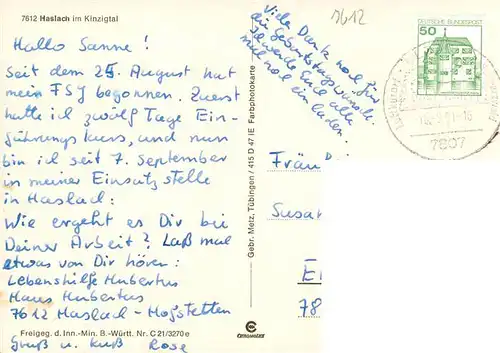 7612 Haslach im Kinzigtal
Hallo Sanne!
Seit dem 25. August hat
mein FSJ begonnen. Zuerst
hatte ich zwölf Tage Ein-
führungskurs, und nun
bin ich seit 7. September
in meiner Einsatzstelle
in Haslach.
Wie ergeht es Dir bei
Deiner Arbeit? Laß mal
etwas von Dir hören:
Lebenshilfe Hubertus
Haus Hubertus
7612 Haslach-Hofstetten
Gruß u. Kuß Rose
Freigeg. d. Inn.-Min. B.-Württ. Nr. C 21/3270 e
Viele Dank noch für
die Geburtstagswünsche.
Ich werde Euch alle
mal noch einladen.
Gebr. Metz, Tübingen / 415 D 47 IE Farbphotokarte
7612
DEUTSCHE BUNDESPOST
50
7807
Fräu
Susa
78